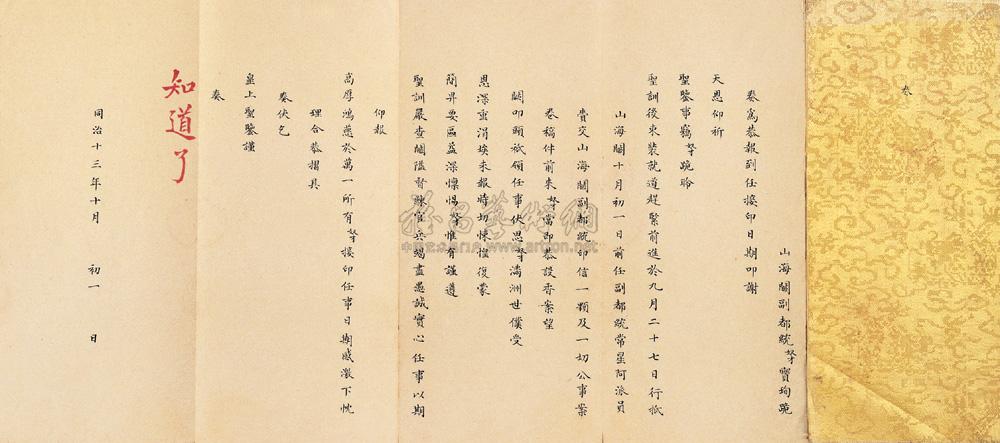 奏
山海關副都統奴才寶珣跪
奏為恭報到任接印日期叩謝
天恩仰祈
聖鑒事竊奴才跪聆
聖訓後束裝就道趕緊前進於九月二十七日行抵
山海關十月初一日前任副都統常星阿派員
賫交山海關副都統印信一顆及一切公事案
卷稿件前來奴才當即恭設香案望
闕叩頭祇領任事伏思奴才滿洲世僕受
恩深重涓埃未報時切悚惶復蒙
簡畀要區益深懍惕奴才惟有謹遵
聖訓嚴查關隘督練官兵竭盡愚誠實心任事以期
仰報
高厚鴻慈於萬一所有奴才接印任事日期感激下忱
理合恭摺具
奏伏乞
皇上聖鑒謹
奏
知道了
同治十三年十月 初一 日